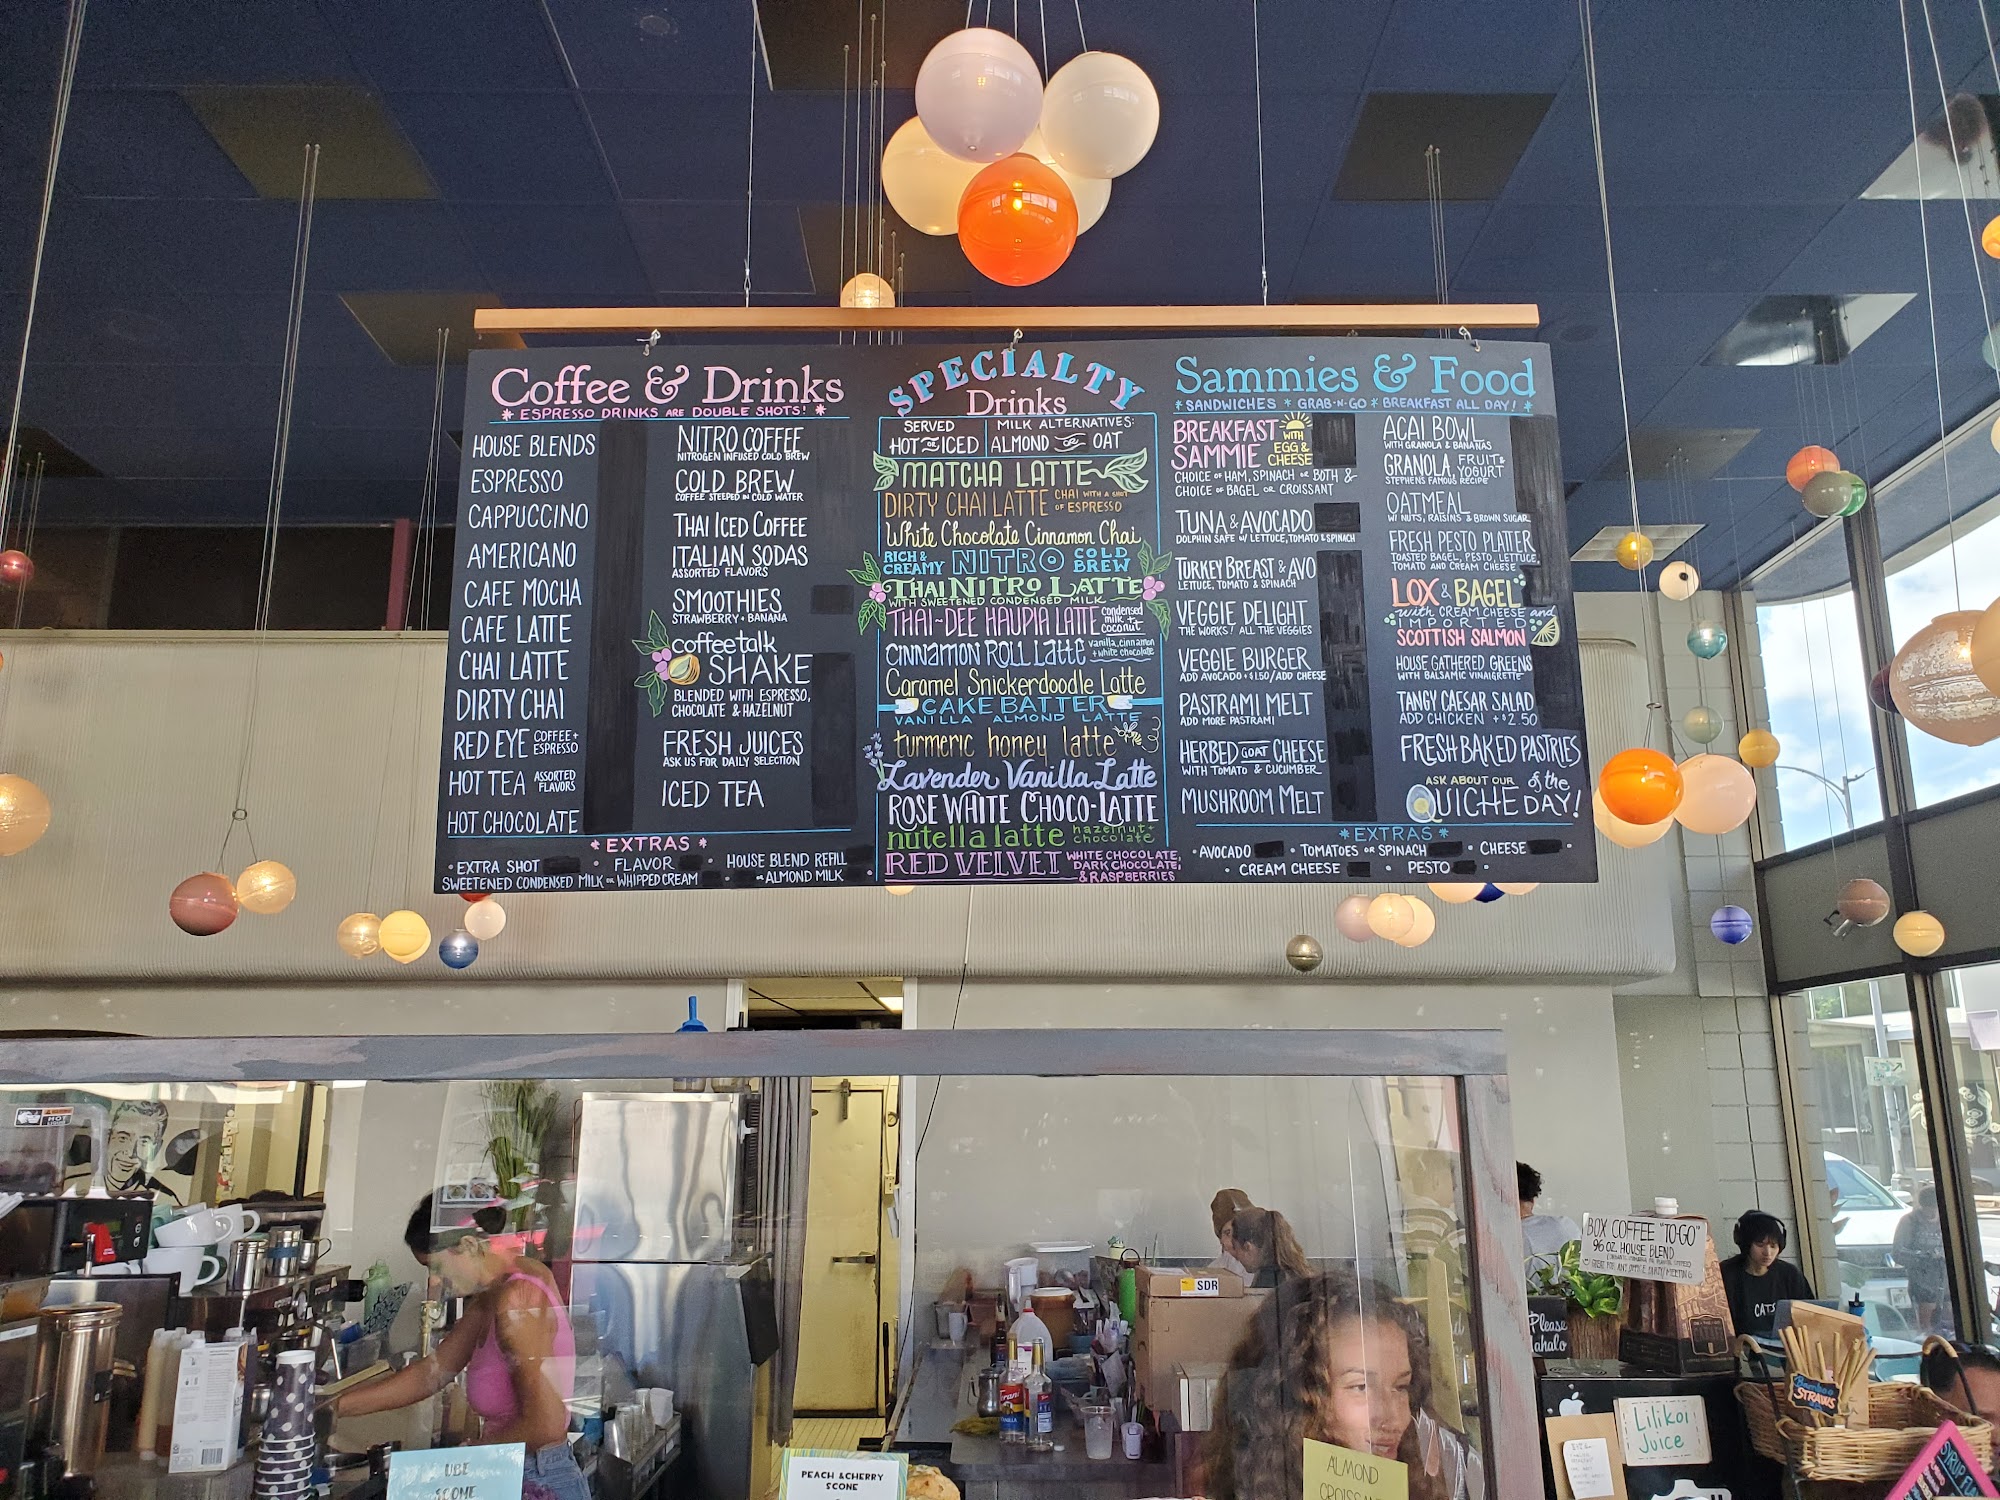 Coffee & Drinks
* ESPRESSO DRINKS ARE DOUBLE SHOTS! *
HOUSE BLENDS
ESPRESSO
CAPPUCCINO
AMERICANO
CAFE MOCHA
CAFE LATTE
CHAI LATTE
DIRTY CHAI
RED EYE COFFEE + ESPRESSO
HOT TEA ASSORTED FLAVORS
HOT CHOCOLATE
NITRO COFFEE
NITROGEN INFUSED COLD BREW
COLD BREW
COFFEE STEEPED IN COLD WATER
THAI ICED COFFEE
ITALIAN SODAS
ASSORTED FLAVORS
SMOOTHIES
STRAWBERRY • BANANA
coffeetalk
SHAKE
BLENDED WITH ESPRESSO,
CHOCOLATE & HAZELNUT
FRESH JUICES
ASK US FOR DAILY SELECTION
ICED TEA
* EXTRAS *
• EXTRA SHOT • FLAVOR • HOUSE BLEND REFILL
SWEETENED CONDENSED MILK OR WHIPPED CREAM • OR ALMOND MILK •
SPECIALTY
Drinks
SERVED
HOT OR ICED
MILK ALTERNATIVES:
ALMOND OR OAT
MATCHA LATTE
DIRTY CHAI LATTE CHAI WITH A SHOT OF ESPRESSO
White Chocolate Cinnamon Chai
RICH & CREAMY NITRO COLD BREW
THAI NITRO LATTE
WITH SWEETENED CONDENSED MILK
THAI-DEE HAUPIA LATTE condensed milk + coconut
CINNAMON ROLL Latte vanilla, cinnamon + white chocolate
Caramel Snickerdoodle Latte
CAKE BATTER
VANILLA ALMOND LATTE
turmeric honey latte
Lavender Vanilla Latte
ROSE WHITE CHOCO-LATTE
nutella latte hazelnut + chocolate
RED VELVET WHITE CHOCOLATE, DARK CHOCOLATE, & RASPBERRIES
Sammies & Food
* SANDWICHES * GRAB-N-GO * BREAKFAST ALL DAY! *
BREAKFAST
SAMMIE
WITH
EGG &
CHEESE
CHOICE OF HAM, SPINACH OR BOTH &
CHOICE OF BAGEL OR CROISSANT
TUNA & AVOCADO
DOLPHIN SAFE W/ LETTUCE, TOMATO & SPINACH
TURKEY BREAST & AVO
LETTUCE, TOMATO & SPINACH
VEGGIE DELIGHT
THE WORKS! ALL THE VEGGIES
VEGGIE BURGER
ADD AVOCADO +$1.50/ADD CHEESE
PASTRAMI MELT
ADD MORE PASTRAMI
HERBED GOAT CHEESE
WITH TOMATO & CUCUMBER
MUSHROOM MELT
ACAI BOWL
WITH GRANOLA & BANANAS
GRANOLA, FRUIT & YOGURT
STEPHENS FAMOUS RECIPE
OATMEAL
W/ NUTS, RAISINS & BROWN SUGAR
FRESH PESTO PLATTER
TOASTED BAGEL, PESTO, LETTUCE,
TOMATO AND CREAM CHEESE
LOX & BAGEL
with CREAM CHEESE and
IMPORTED
SCOTTISH SALMON
HOUSE GATHERED GREENS
WITH BALSAMIC VINAIGRETTE
TANGY CAESAR SALAD
ADD CHICKEN +$2.50
FRESH BAKED PASTRIES
ASK ABOUT OUR
QUICHE of the DAY!
* EXTRAS *
• AVOCADO • TOMATOES OR SPINACH • CHEESE •
• CREAM CHEESE • PESTO •
HOT
SDR
BOX COFFEE "TO-GO"
96 OZ. HOUSE BLEND
Please
CATS
Bamboo
STRAWS
Lilikoi
Juice
UBE
SCONE
PEACH & CHERRY
SCONE
ALMOND